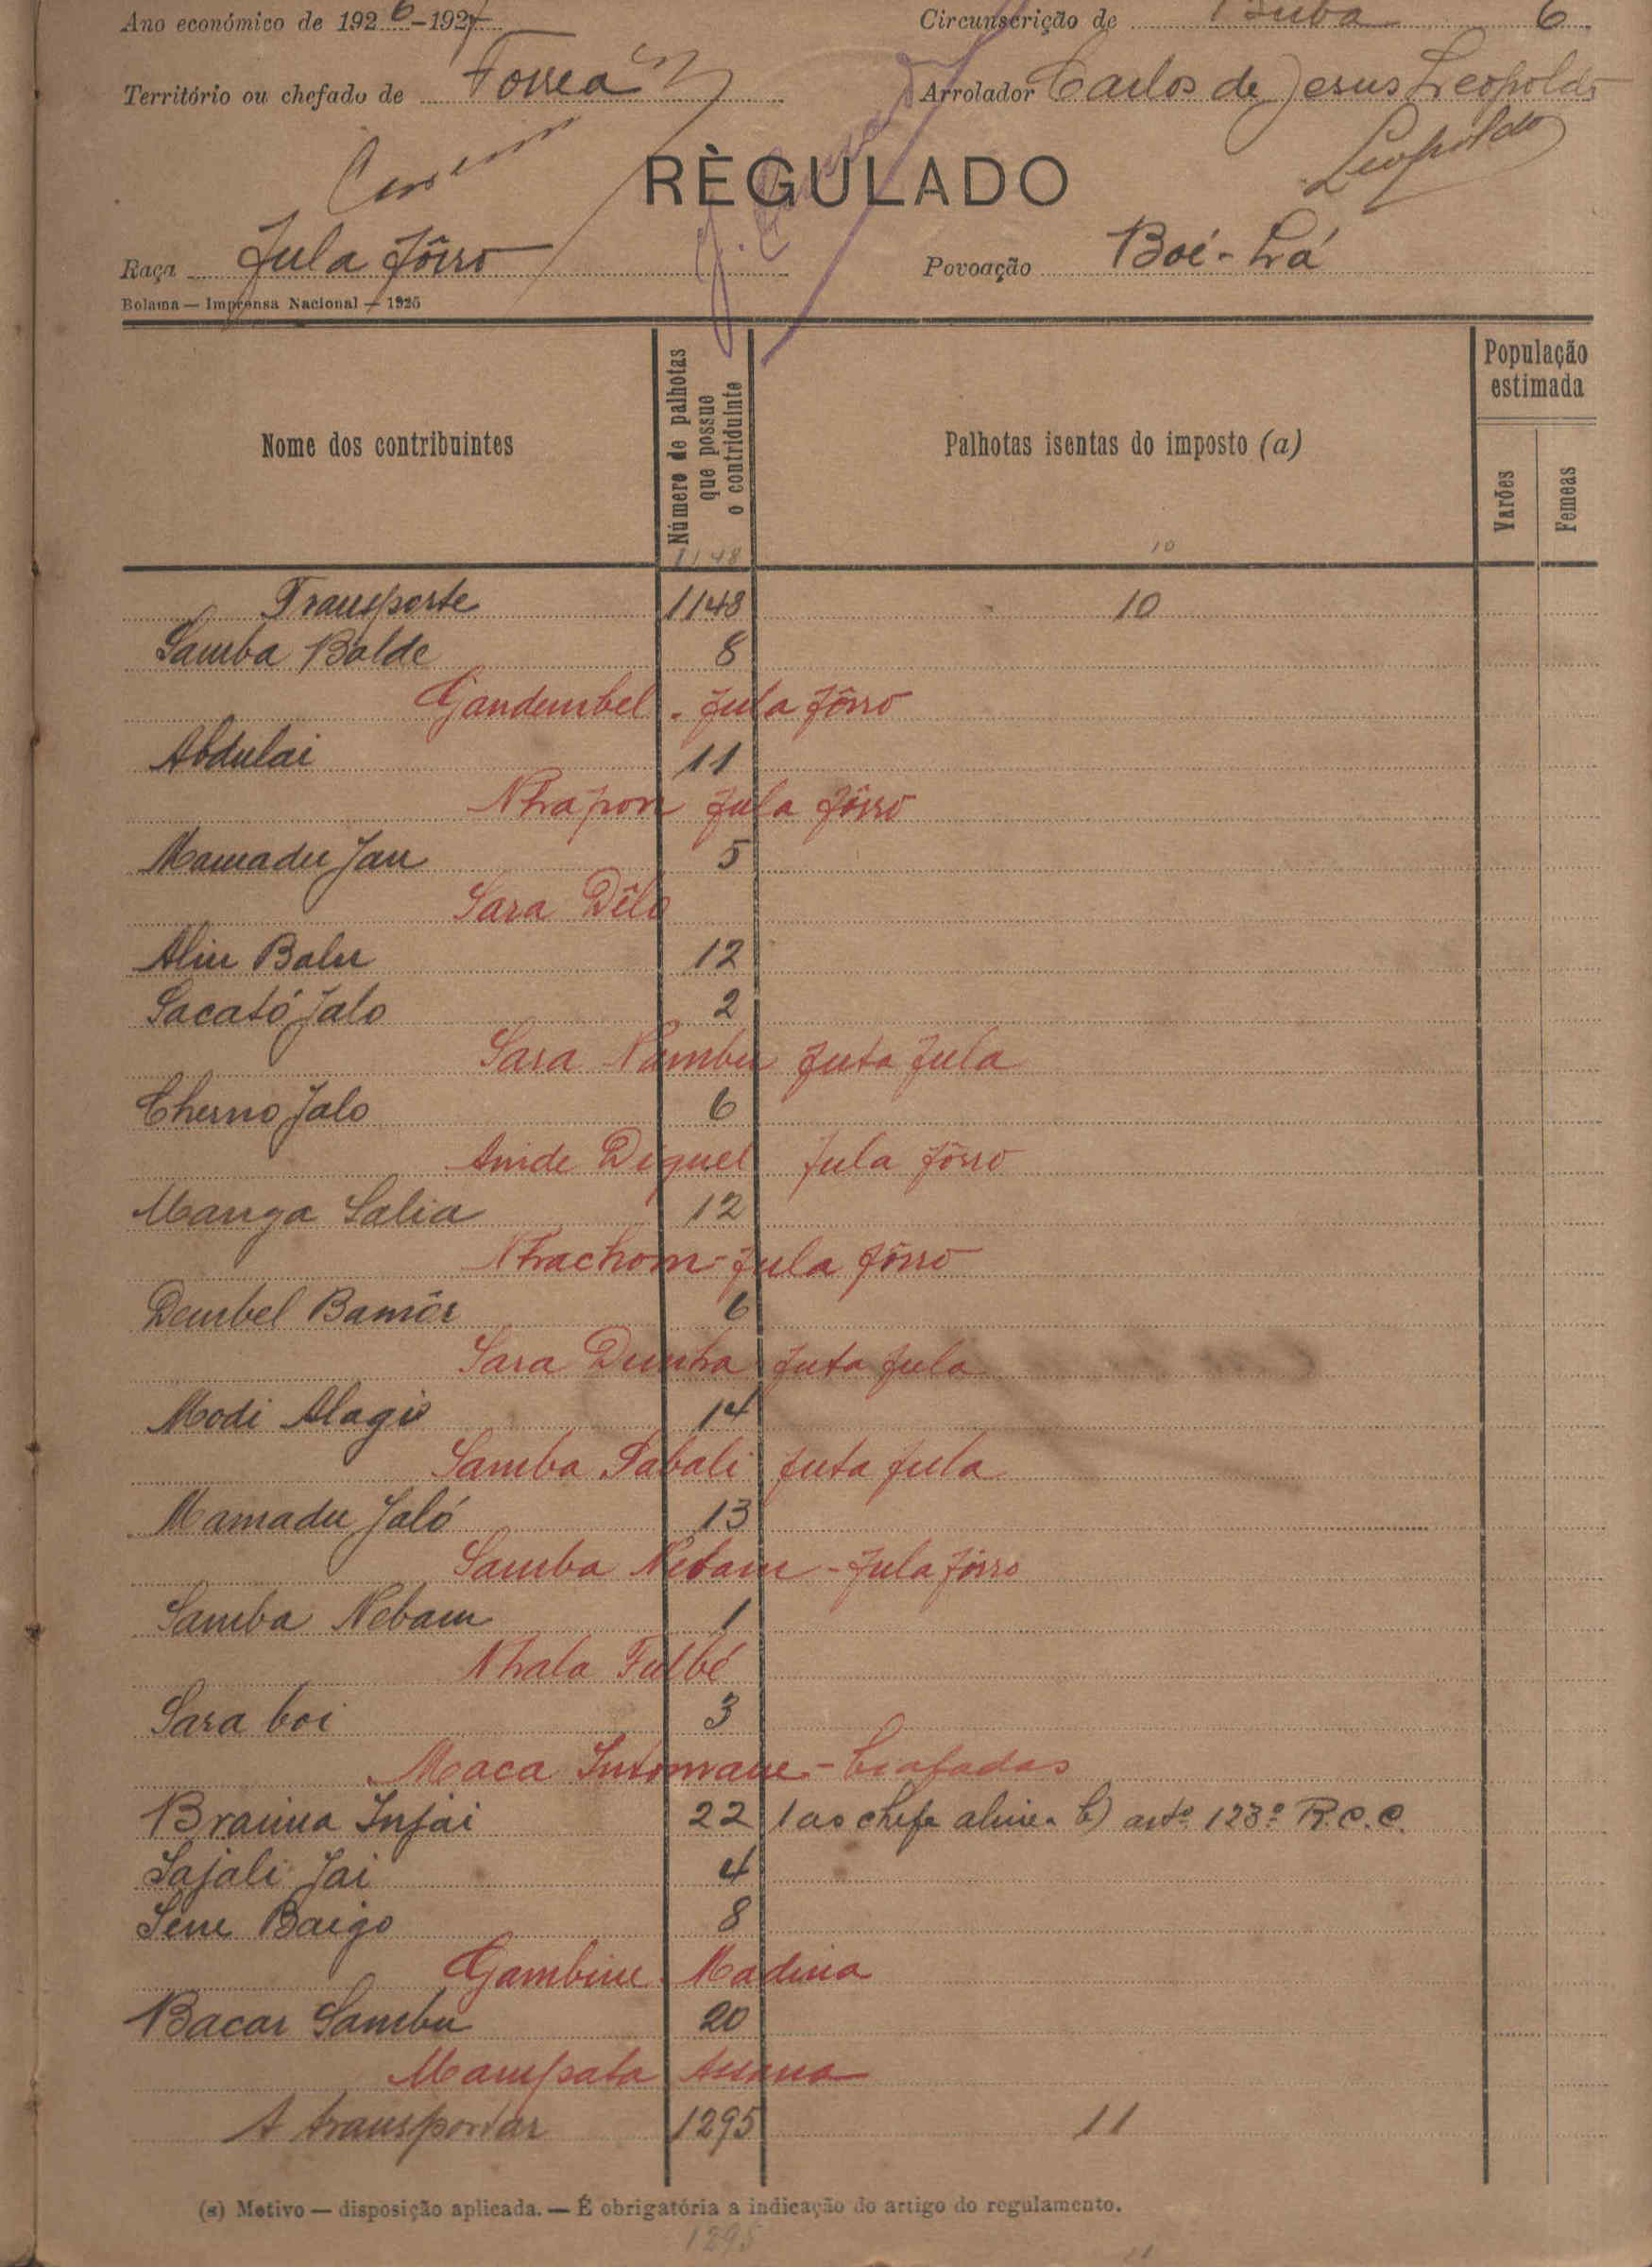 Ano económico de 1926-1927 Circunscrição de Buba 6
Território ou chefado de Forreá Arrolador Carlos de Jesus Leopoldo
Leopoldo
RÈGULADO
Raça Fula fôrro Povoação Boé-Lrá
Bolama — Imprensa Nacional — 1925
Nome dos contribuintes Número de palhotas que possue o contriduinte Palhotas isentas do imposto (a) População estimada
Varões Femeas
1148 10
Transporte 1148 10
Samba Balde 8
Gandembel - fula fôrro
Abdulai 11
Nhapon fula fôrro
Mamadu Jau 5
Sara Dêlo
Aliu Balu 12
Sacató Jalo 2
Sara Nambu futa fula
Cherno Jalo 6
Anide Diguel fula fôrro
Manga Salia 12
Nhachom - fula fôrro
Dembel Bamôr 6
Sara Dunha futa fula
Modi Alagi 14
Samba Sabali futa fula
Mamadu Jaló 13
Samba Nebam - fula fôrro
Samba Nebam 1
Nhala Fulbé
Sara boi 3
Maca - biafadas
Braima Injai 22 1 ao chefe aline. b) artº 123º R.C.C.
Sajali Jai 4
Sene Baigo 8
Gambine Madina
Bacar Sambu 20
Mampata Assana
A transportar 1295 11
(a) Motivo — disposição aplicada. — É obrigatória a indicação do artigo do regulamento.
1295 11